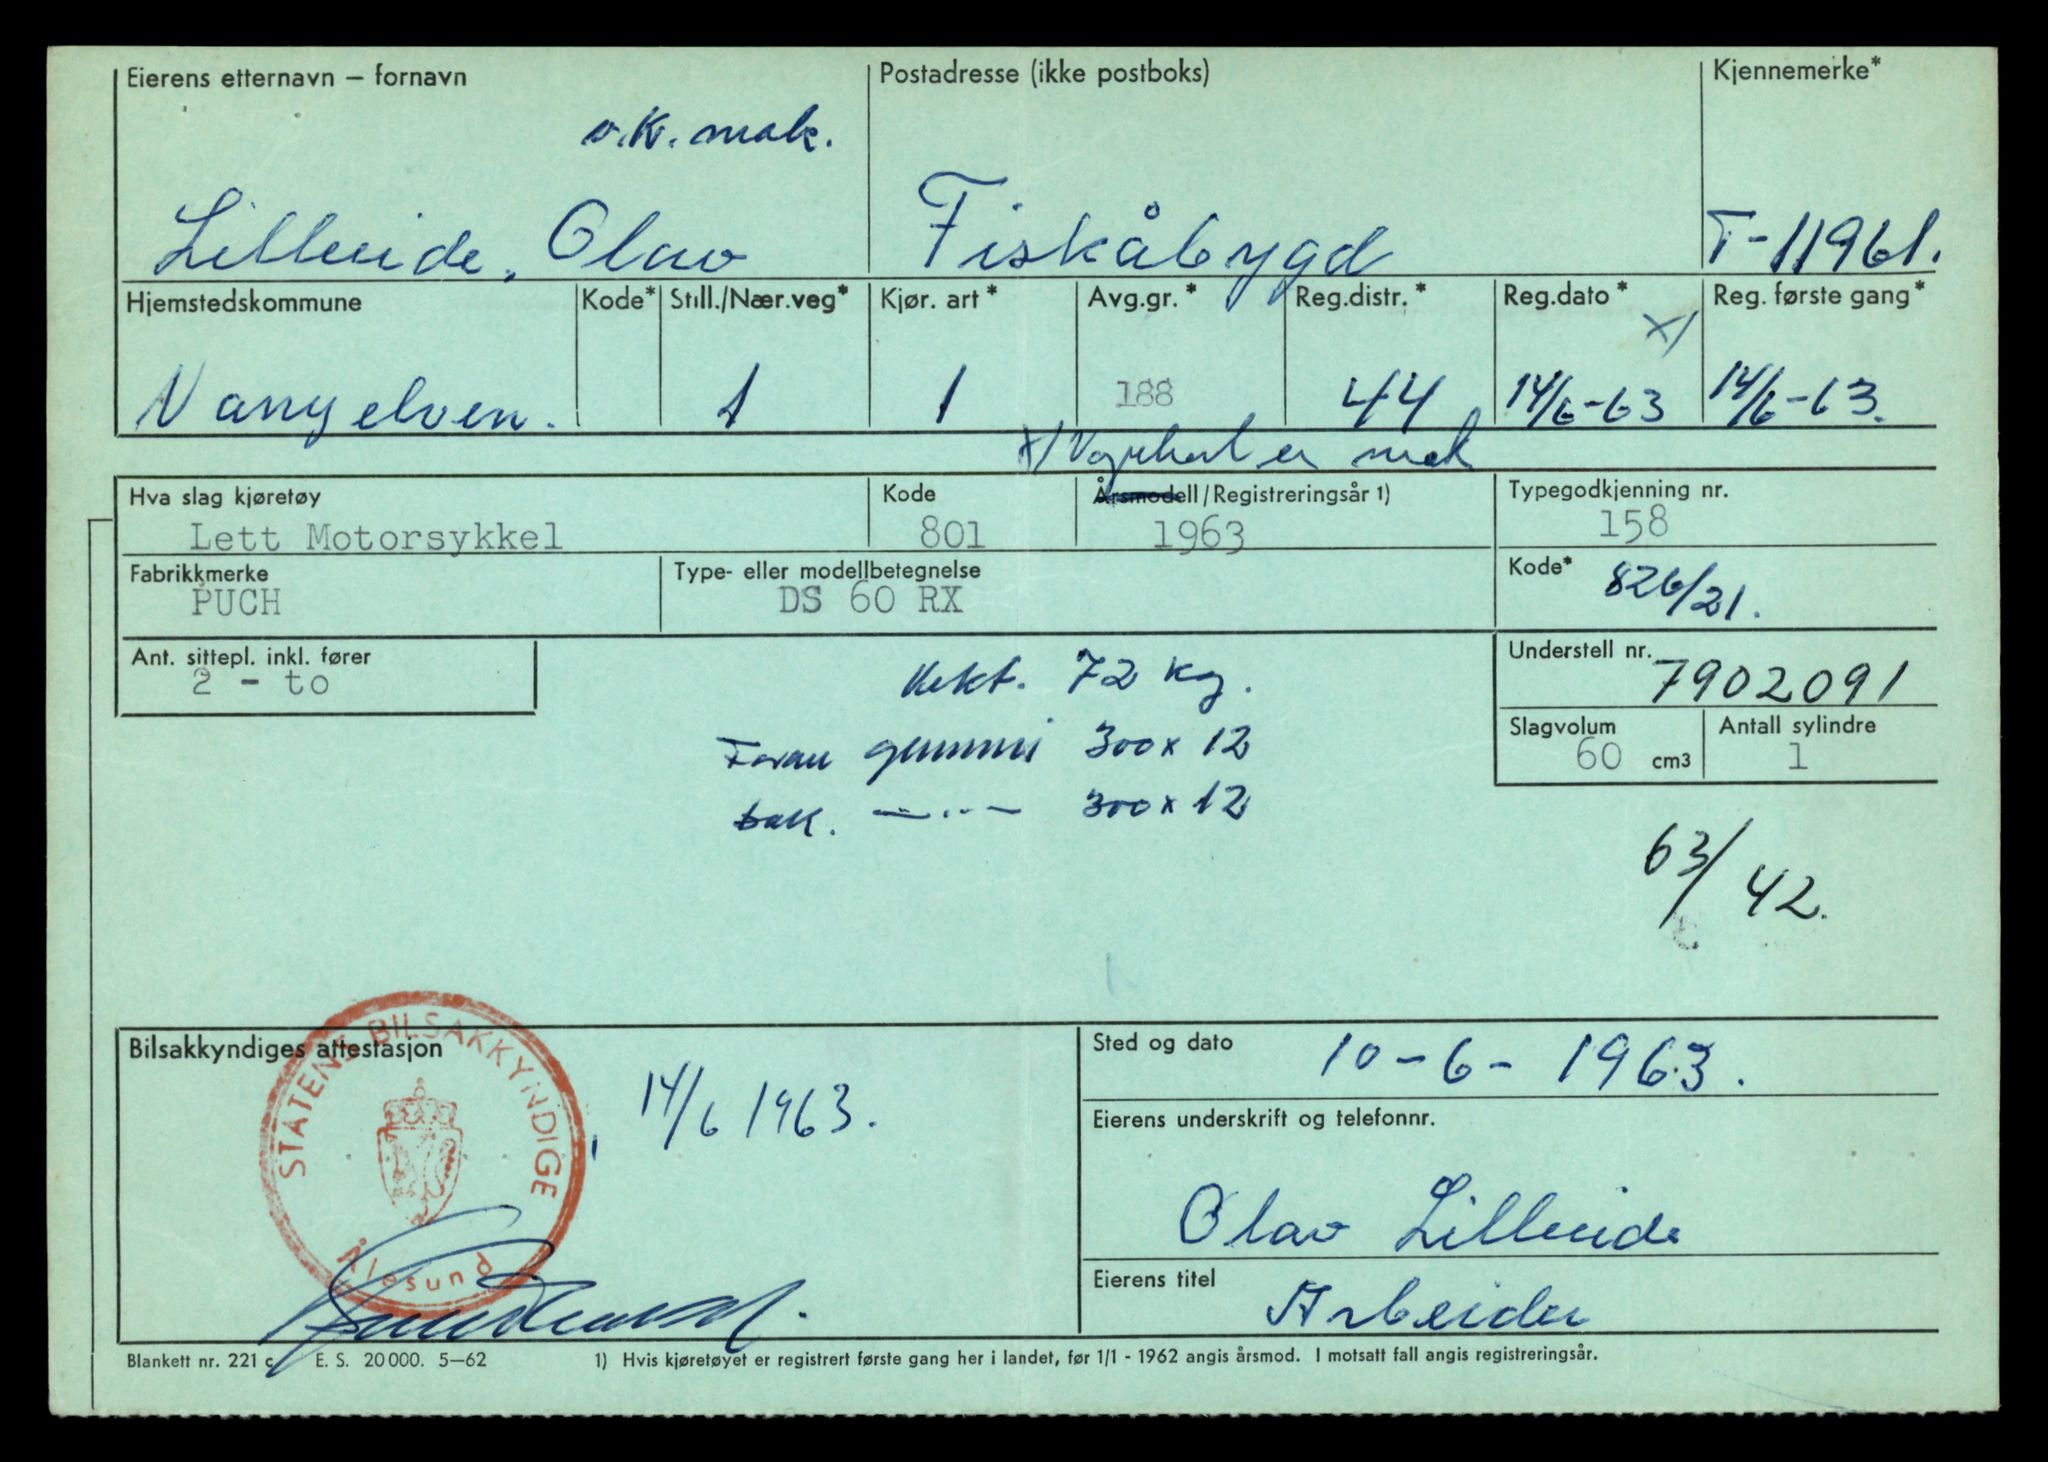 Eierens etternavn – fornavn
Postadresse (ikke postboks)
Kjennemerke*
v.k. mak.
Lilleeide, Olav
Fiskåbygd
T-11961.
Hjemstedskommune
Kode*
Still./Nær.veg*
Kjør. art*
Avg.gr.*
Reg.distr.*
Reg.dato*
Reg. første gang*
x/
Vanylven.
1
1
188
44
14/6-63
14/6-63.
x/ Vognkort er mak
Hva slag kjøretøy
Kode
Årsmodell/Registreringsår 1)
Typegodkjenning nr.
Lett Motorsykkel
801
1963
158
Fabrikkmerke
Type- eller modellbetegnelse
Kode*
PUCH
DS 60 RX
826/21.
Ant. sittepl. inkl. fører
Understell nr.
2 - to
7902091
Vekt. 72 kg.
Foran gummi 300 x 12
bak. —..— 300 x 12
Slagvolum
Antall sylindre
60 cm3
1
63/42.
Bilsakkyndiges attestasjon
STATENS BILSAKKYNDIGE
Ålesund
14/6 1963.
Sted og dato
10-6-1963.
Eierens underskrift og telefonnr.
Olav Lilleeide
Eierens titel
Arbeider
Blankett nr. 221 c
E. S. 20000. 5–62
1) Hvis kjøretøyet er registrert første gang her i landet, før 1/1 - 1962 angis årsmod. I motsatt fall angis registreringsår.